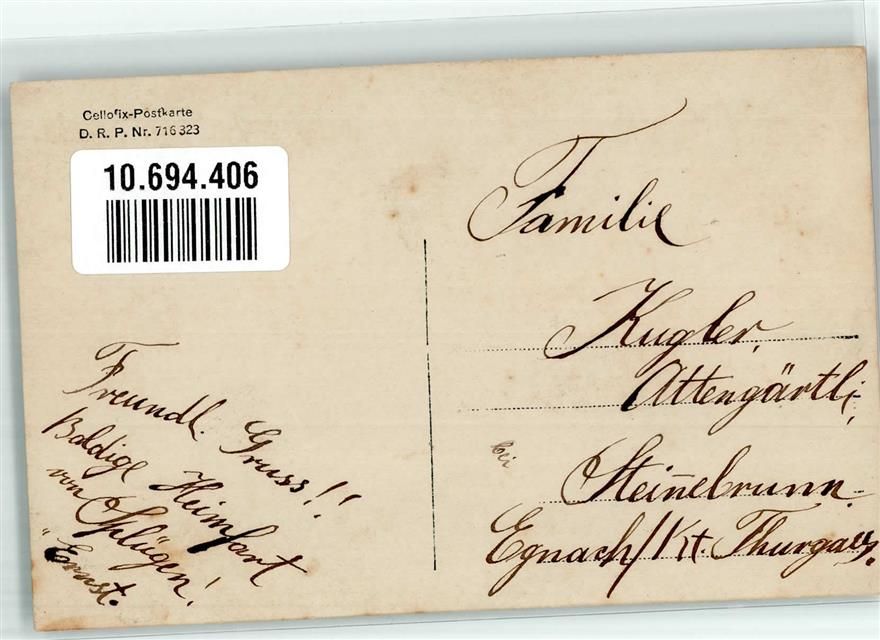 Cellofix-Postkarte
D. R. P. Nr. 716323
10.694.406
Freundl. Gruss!!
Baldige Heimfart
von Splügen!
"Ernst.
Familie
Kugler,
Attengärtli,
bei Stein̅ebrunn.
Egnach/Kt. Thurgau.